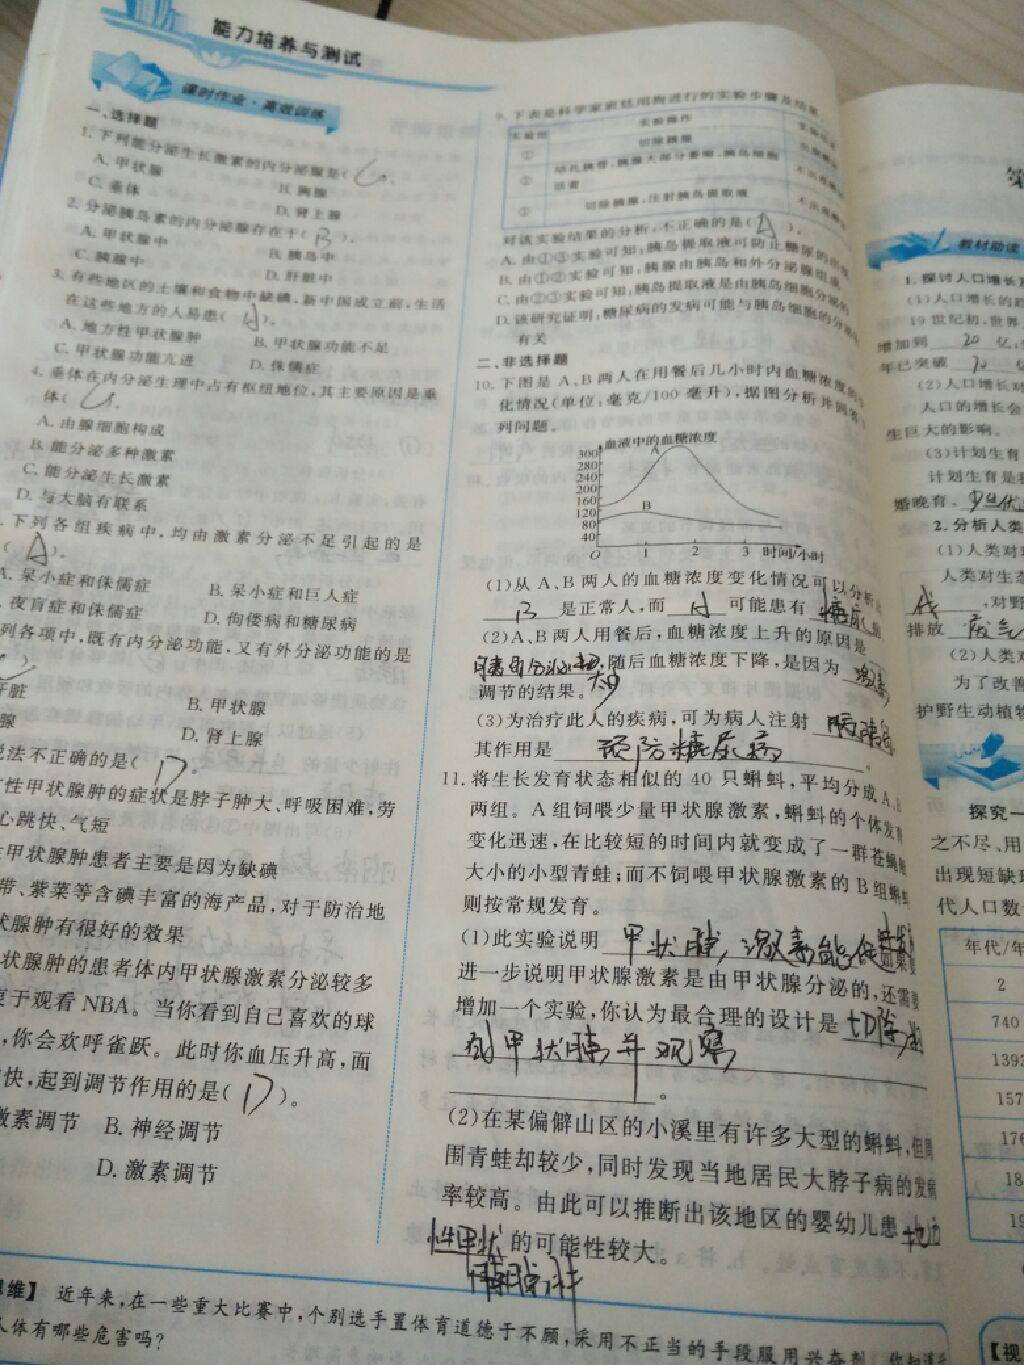 能力培养与测试
课时作业·高效训练
一、选择题
1.下列能分泌生长激素的内分泌腺是( C ).
A.甲状腺 B.胸腺
C.垂体 D.肾上腺
2.分泌胰岛素的内分泌腺存在于( B ).
A.甲状腺中 B.胰岛中
C.胸腺中 D.肝脏中
3.有些地区的土壤和食物中缺碘,新中国成立前,生活
在这些地方的人易患( A ).
A.地方性甲状腺肿 B.甲状腺功能不足
C.甲状腺功能亢进 D.侏儒症
4.垂体在内分泌生理中占有枢纽地位,其主要原因是垂
体( C ).
A.由腺细胞构成
B.能分泌多种激素
C.能分泌生长激素
D.与大脑有联系
.下列各组疾病中,均由激素分泌不足引起的是
( A ).
A.呆小症和侏儒症 B.呆小症和巨人症
.夜盲症和侏儒症 D.佝偻病和糖尿病
列各项中,既有内分泌功能,又有外分泌功能的是
肝脏 B.甲状腺
腺 D.肾上腺
说法不正确的是( D ).
性甲状腺肿的症状是脖子肿大、呼吸困难,劳
心跳快、气短
甲状腺肿患者主要是因为缺碘
带、紫菜等含碘丰富的海产品,对于防治地
状腺肿有很好的效果
状腺肿的患者体内甲状腺激素分泌较多
衷于观看NBA。当你看到自己喜欢的球
,你会欢呼雀跃。此时你血压升高,面
快,起到调节作用的是( D )。
激素调节 B.神经调节
D.激素调节
9.下表是科学家索廷用狗进行的实验步骤及结果
实验组 实验操作
① 切除胰腺
② 结扎胰管,胰腺大部分萎缩,胰岛细胞
活着
③ 切除胰腺,注射胰岛提取液
对该实验结果的分析,不正确的是( A ).
A.由①③实验可知,胰岛提取液可防止糖尿的出
B.由①②实验可知,胰腺由胰岛和外分泌腺组成
C.由②③实验可知,胰岛提取液是由胰岛细胞分泌的
D.该研究证明,糖尿病的发病可能与胰岛细胞的分泌
有关
二、非选择题
10.下图是A、B两人在用餐后几小时内血糖浓度的
化情况(单位:毫克/100毫升),据图分析并回答
列问题。
血液中的血糖浓度
300
280
240
200
160
120
80
40
A
B
O 1 2 3 时间/小时
(1)从A、B两人的血糖浓度变化情况可以分析
B 是正常人,而 A 可能患有 糖尿
(2)A、B两人用餐后,血糖浓度上升的原因是
随后血糖浓度下降,是因为 激素
调节的结果。
(3)为治疗此人的疾病,可为病人注射
其作用是 预防糖尿病 。
11.将生长发育状态相似的40只蝌蚪,平均分成A、B
两组。A组饲喂少量甲状腺激素,蝌蚪的个体发育
变化迅速,在比较短的时间内就变成了一群苍蝇般
大小的小型青蛙;而不饲喂甲状腺激素的B组蝌蚪
则按常规发育。
(1)此实验说明 甲状腺激素能促进
进一步说明甲状腺激素是由甲状腺分泌的,还需要
增加一个实验,你认为最合理的设计是 切除
甲状腺并观察
。
(2)在某偏僻山区的小溪里有许多大型的蝌蚪,但周
围青蛙却较少,同时发现当地居民大脖子病的发病
率较高。由此可以推断出该地区的婴幼儿患 地
性甲状 的可能性较大。
维】 近年来,在一些重大比赛中,个别选手置体育道德于不顾,采用不正当的手段服用兴奋剂
人体有哪些危害吗?
第
教材助读
1.探讨人口增长
(1)人口增长的
19世纪初,世界
增加到 20 亿,
年已突破
(2)人口增长对
人口的增长会
生巨大的影响。
(3)计划生育
计划生育是
婚晚育、
2.分析人类
(1)人类对
人类对生态
,对野
排放 废气
(2)人类对
为了改善
护野生动植物
探究一
之不尽、用
出现短缺现
代人口数
年代/年
2
740
1393
157
176
18
19
【视